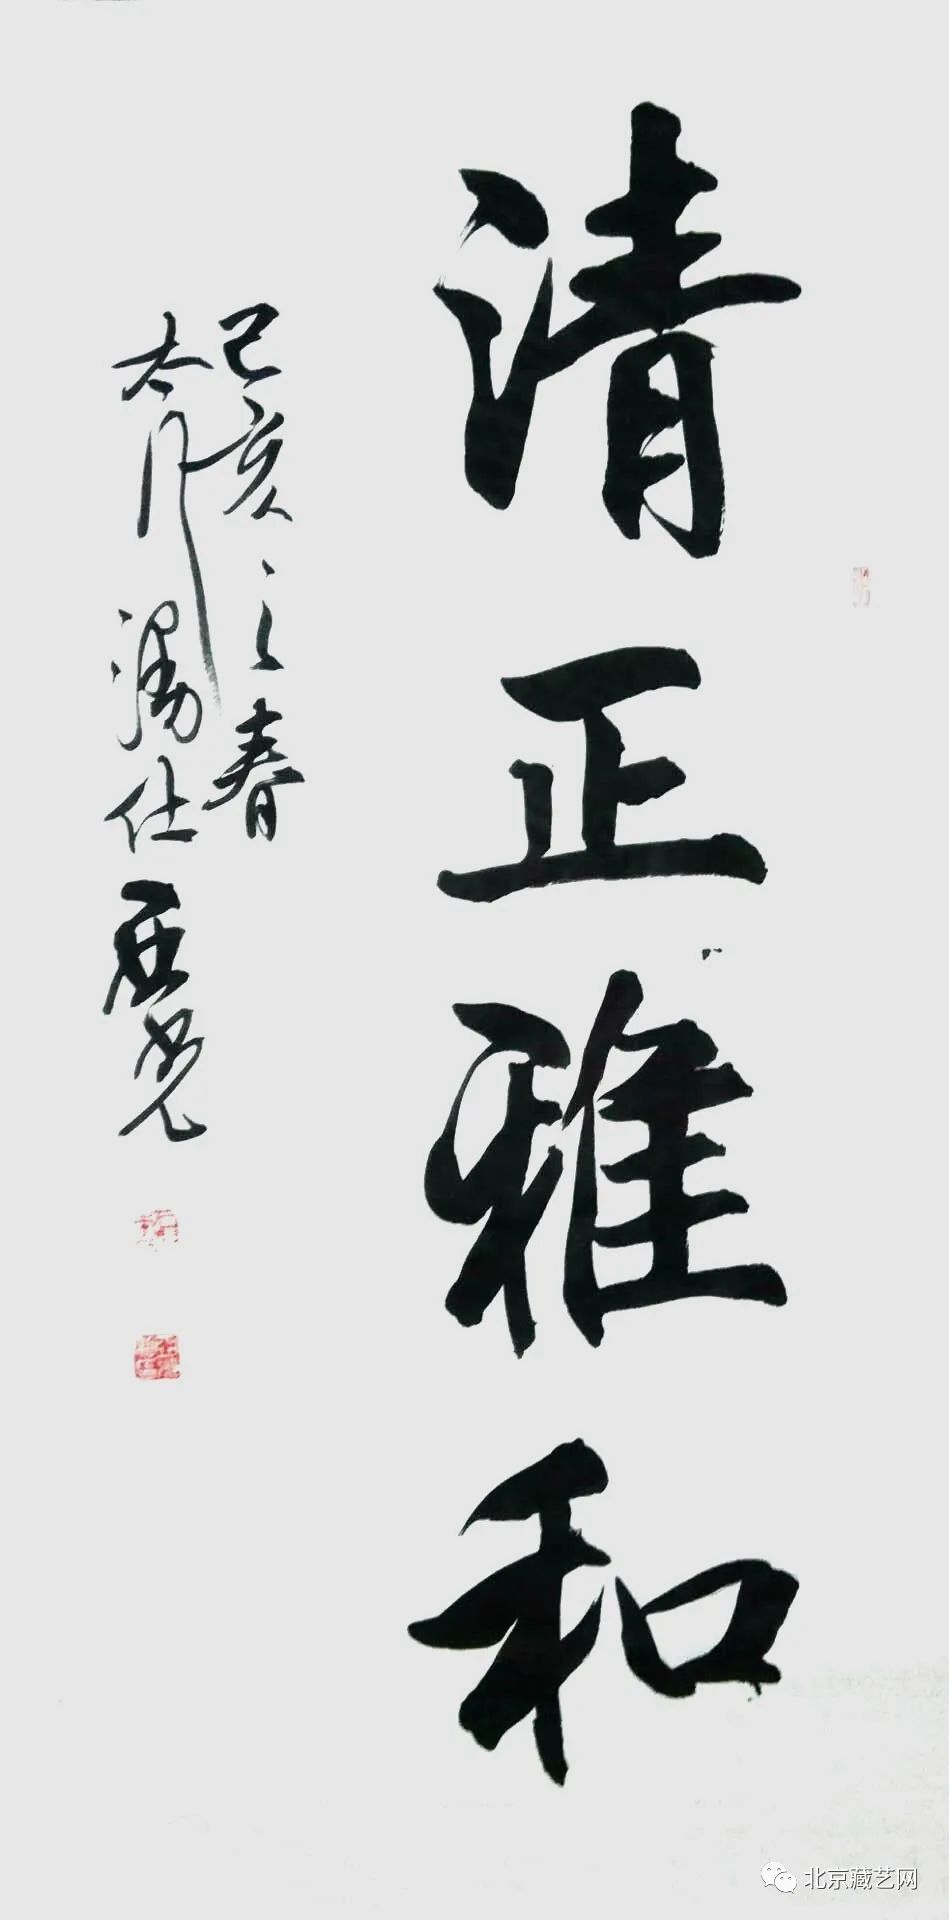 清正雅和
己亥之春
太行汤仕
北京藏艺网